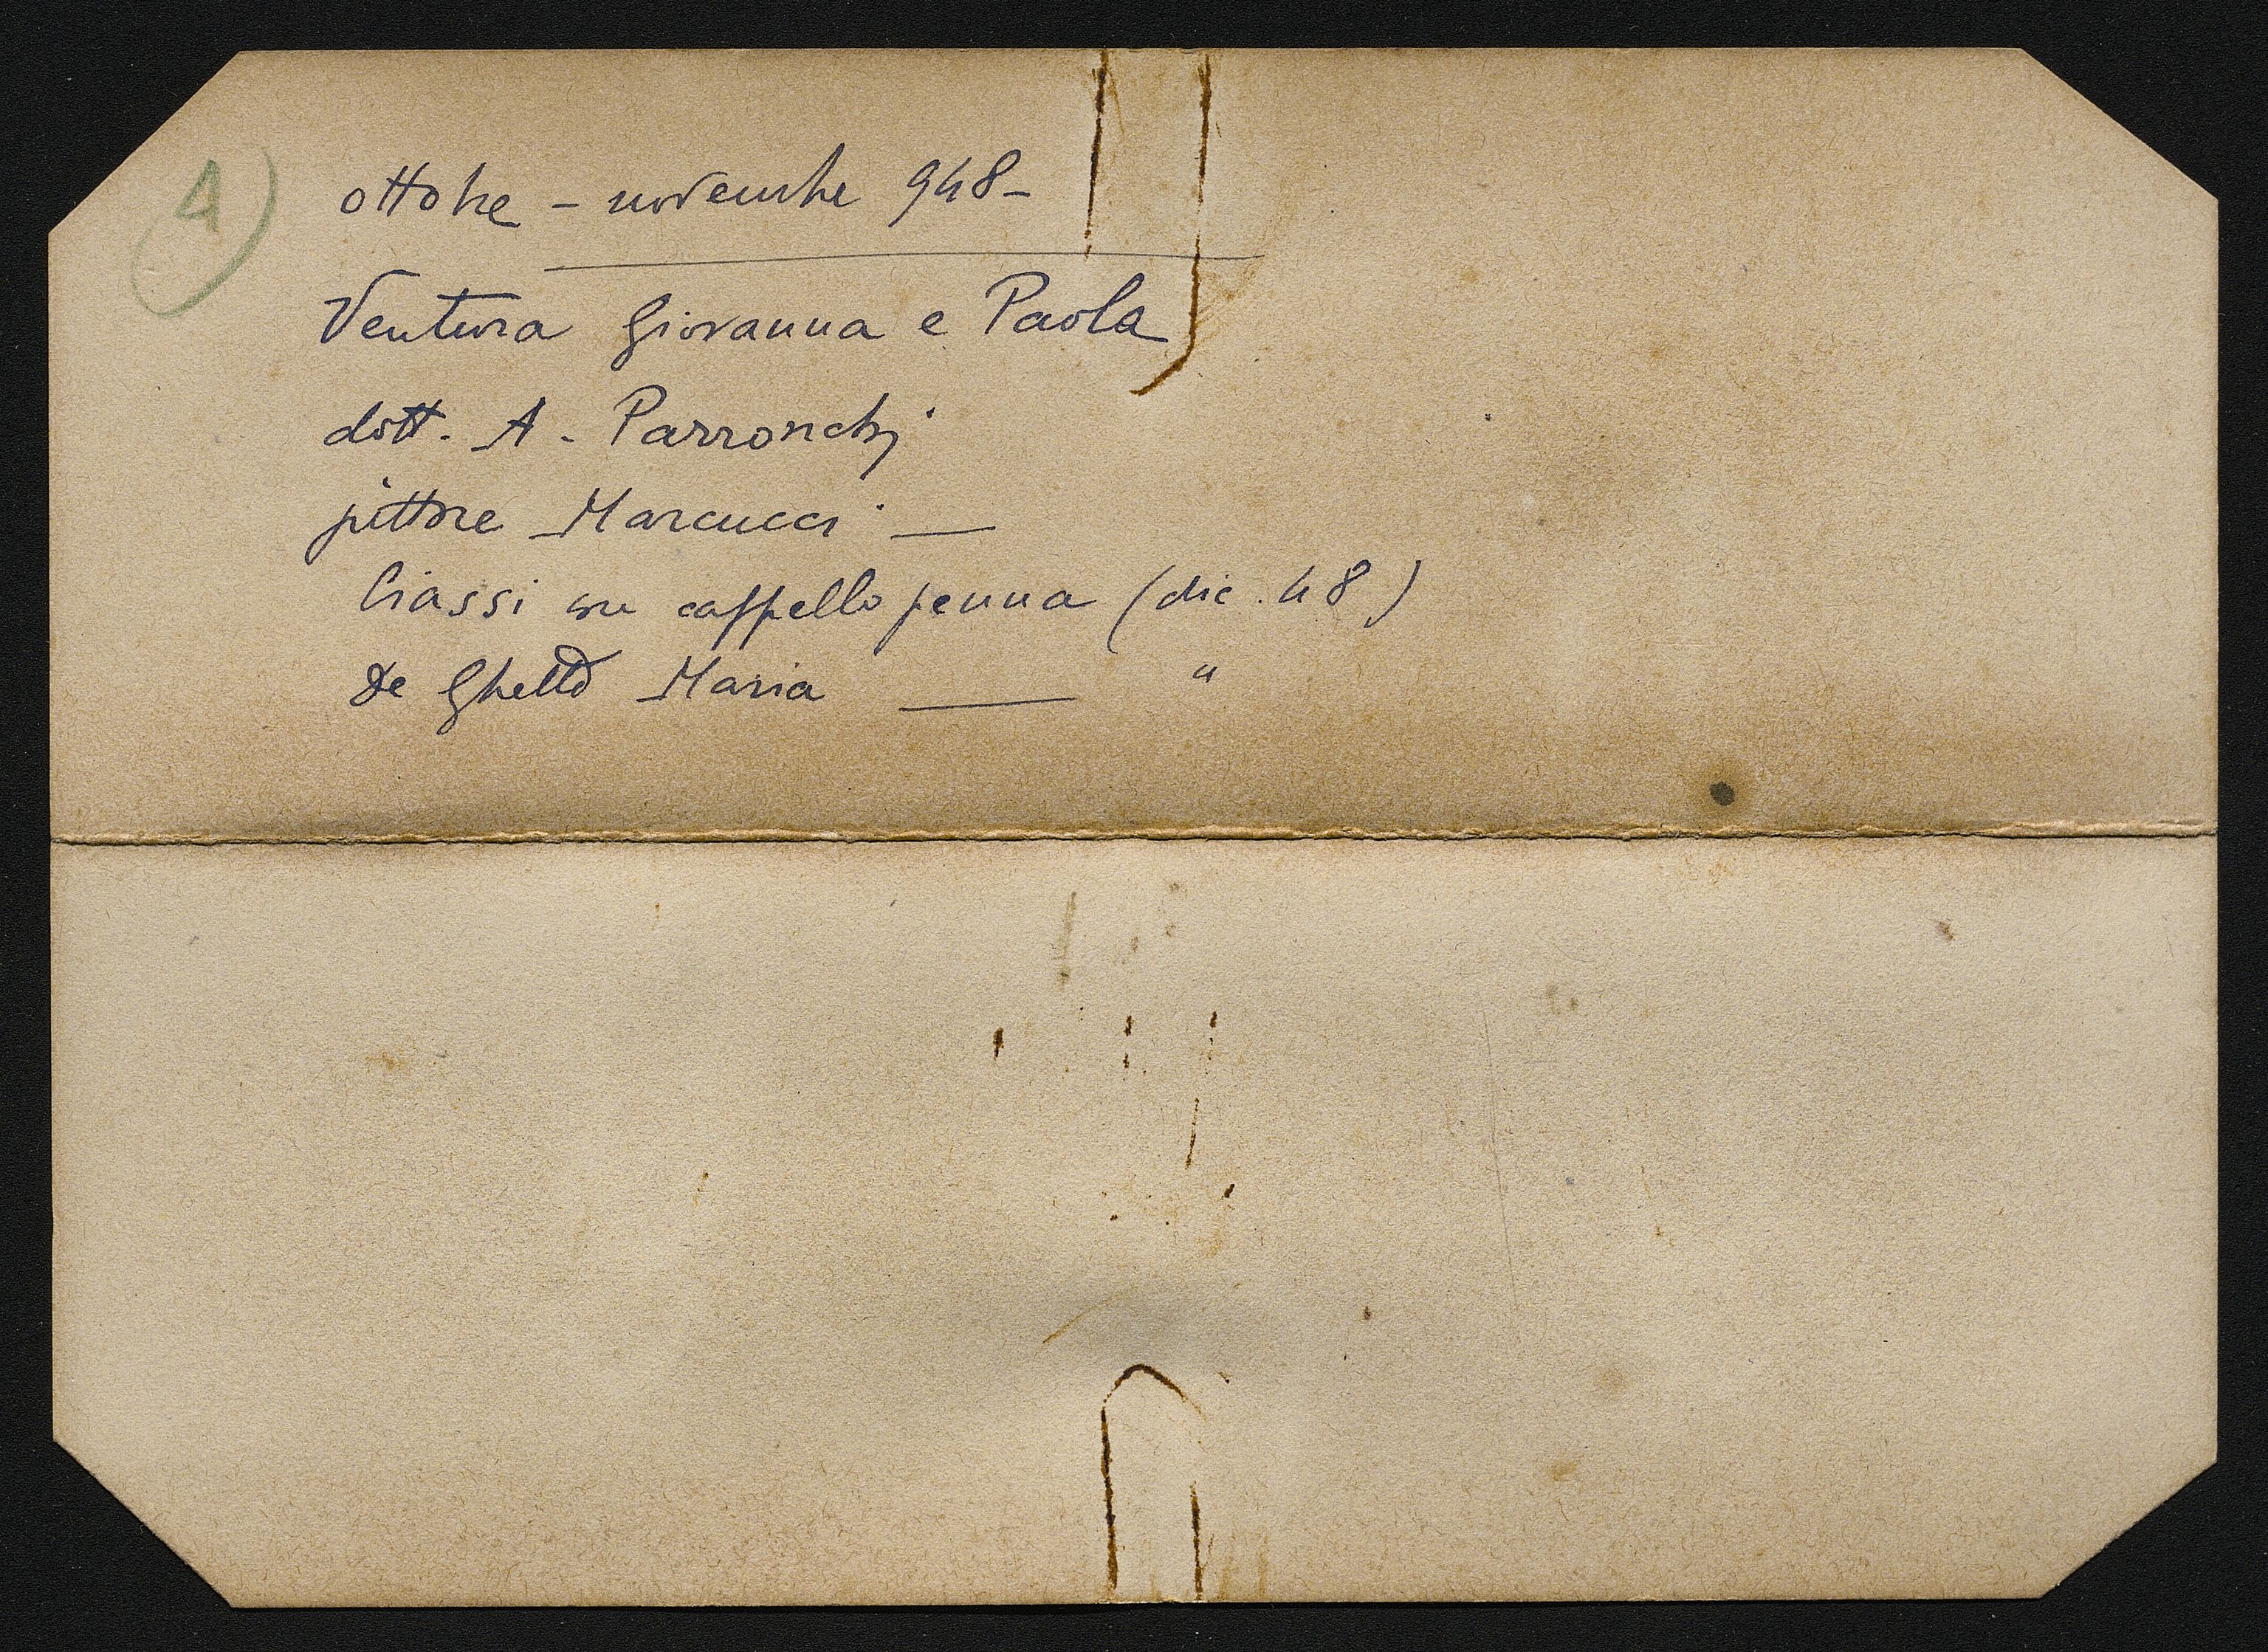 4)
ottobre - novembre 948-
Ventura Giovanna e Paola
dott. A. Parronchi
pittore Marcucci —
Ciassi con cappello penna (dic. 48)
De Ghetto Maria — "